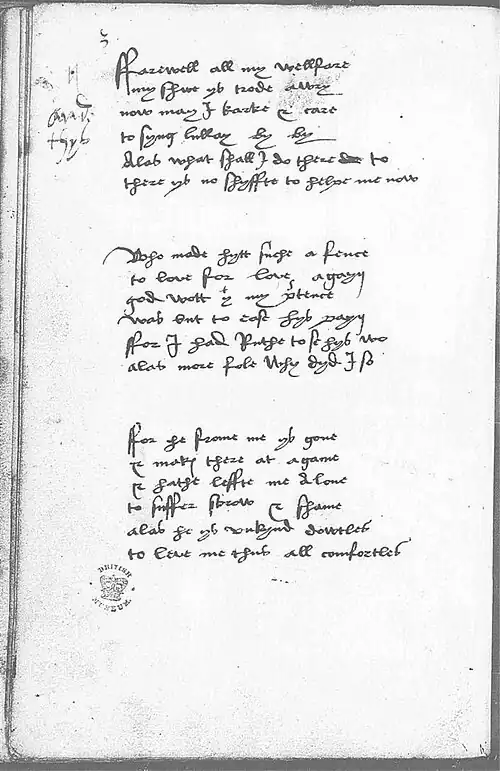 and
thys
ffarewell all my wellfare
my shue ys trode awry
now may I karke & care
to syng lullay by by
Alas what shall I do there to
there ys no shyffte to helpe me now
Who made hytt suche a fence
to love for love agayn
god wott yt my prtence
was but to ease hys payn
ffor I had Ruthe to se hys wo
alas more fole Why dyd I so
ffor he frome me ys gone
& makes there at agame
& hathe leffte me Alone
to suffer sorow & shame
alas he ys vnkynd dowtles
to leve me thus all comfortles
BRITISH
MUSEUM